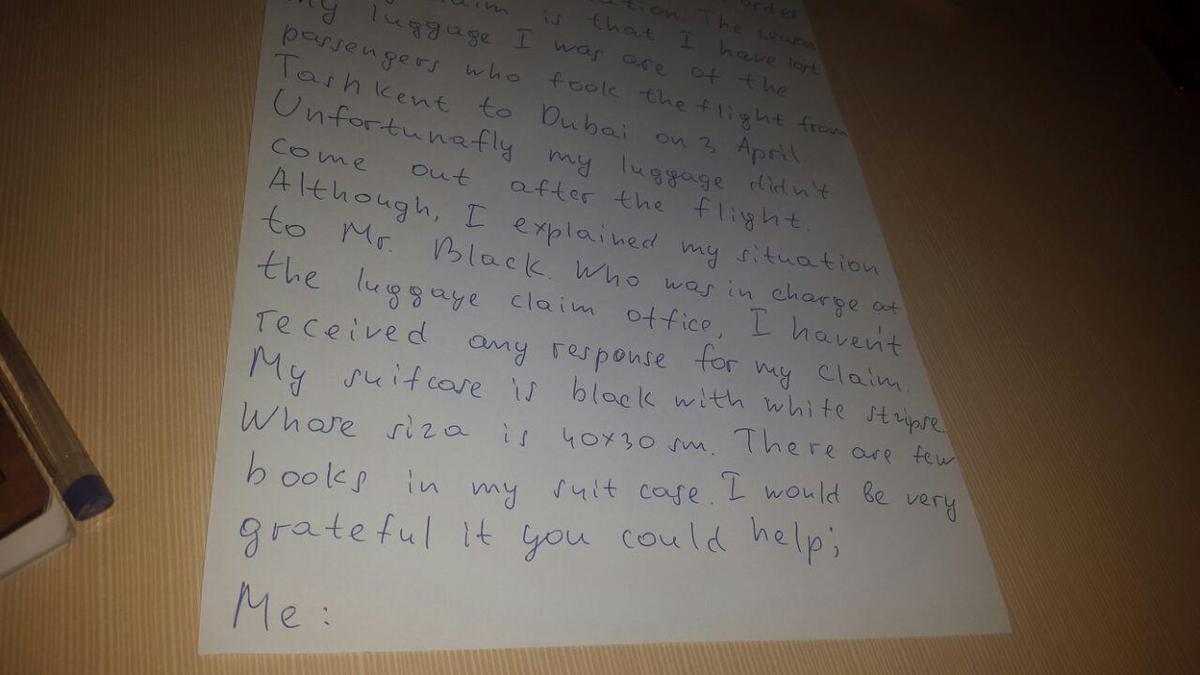 order
claim is that I have lost
my luggage I was are of the
passengers who fook the flight from
Tashkent to Dubai on 3 April.
Unfortunafly my luggage didn't
come out after the flight.
Although, I explained my situation
to Mr. Black. Who was in charge at
the luggaye claim office, I haven't
received any response for my claim.
My suifcase is black with white stripse
Whose siza is 40x30 sm. There are few
books in my suit case. I would be very
grateful it you could help;
Me: